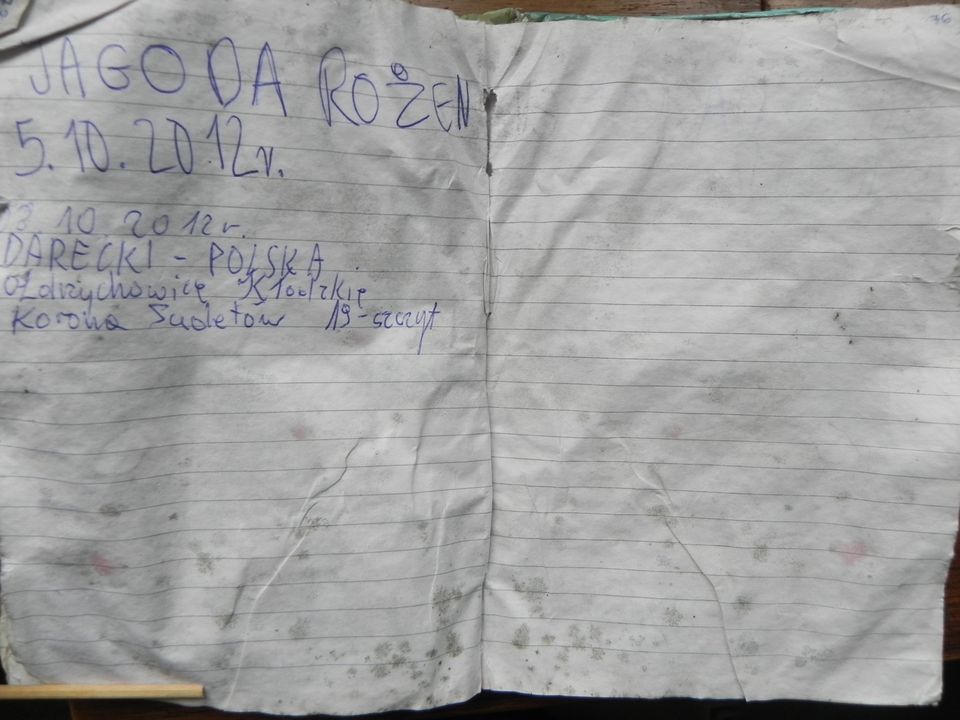 JAGODA ROŻEN
5.10.2012r.
10.2012r.
DARECKI - POLSKA
Ołdrzychowice Kłodzkie
Korona Sudetów 19-szczyt
76